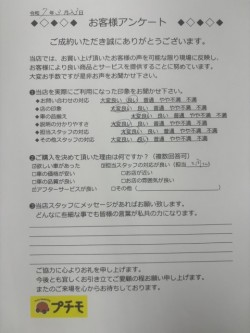 令和 7年 月 日
◆◇◆◇◆ お客様アンケート ◆◇◆◇◆
ご成約いただき誠にありがとうございます。
当店では、お買い上げ頂いたお客様の声を可能な限り現場に反映し、
お客様により良い商品とサービスを提供することに努めています。
大変お手数ですが是非お声をお聞かせ下さい。
❶当店を実際にご利用になった印象をお聞かせ下さい。
◆お問い合わせの対応 大変良い 良い 普通 やや不満 不満
◆お店の印象 大変良い 良い 普通 やや不満 不満
◆車の品揃え 大変良い 良い 普通 やや不満 不満
◆説明の分かりやすさ 大変良い 良い 普通 やや不満 不満
◆担当スタッフの対応 大変良い 良い 普通 やや不満 不満
◆その他スタッフの対応 大変良い 良い 普通 やや不満 不満
❷ご購入を決めて頂いた理由は何ですか?(複数回答可)
□欲しい車があった □担当スタッフの対応が良い(担当 )
□車の価値が安い □お店が近い
□車の品質が良い □お店の雰囲気が良い
□アフターサービスが良い □その他( )
❸当店スタッフにメッセージがあればお願い致します。
どんなに些細な事でも皆様の言葉が私共の力になります。
ご協力に心よりお礼を申し上げます。
今後とも宜しくお引き立てご愛顧の程お願い申し上げます。
またのご来場を心からお待ちしております。
プチモ